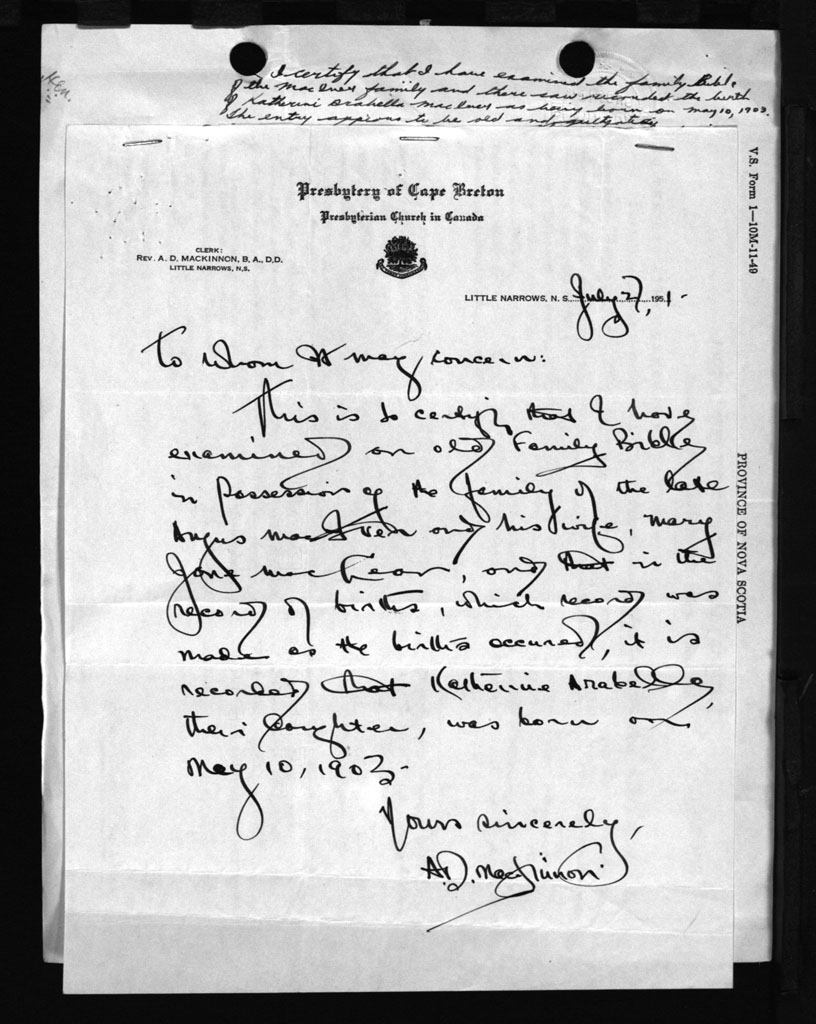 I certify that I have examined the family Bible
of the MacIver family and there saw recorded the birth
of Katherine Arabella MacIver as being born on May 10, 1903.
The entry appears to be old and
V.S. Form 1—10M-11-49
Presbytery of Cape Breton
Presbyterian Church in Canada
CLERK:
REV. A. D. MACKINNON, B. A., D.D.
LITTLE NARROWS, N.S.
LITTLE NARROWS, N. S. July 27, 1951.
PROVINCE OF NOVA SCOTIA
To whom it may concern:
This is to certify that I have
examined an old Family Bible
in possession of the family of the late
Angus MacIver and his wife, Mary
Jane MacLean, and that in the
record of births, which record was
made as the births occured, it is
recorded that Katherine Arabella,
their daughter, was born on
May 10, 1903.
Yours sincerely,
A.D. MacKinnon